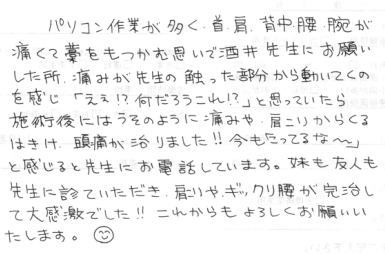 パソコン作業が多く、首、肩、背中、腰、腕が
痛くて藁をもつかむ思いで酒井先生にお願い
した所、痛みが先生の触った部分から動いてくの
を感じ「ええ!?何だろうこれ!?」と思っていたら
施術後にはうそのように痛みや、肩こりからくる
はきけ、頭痛が治りました!!今もたってるな〜」
と感じると先生にお電話しています。妹も友人も
先生に診ていただき、肩こりや、ギックリ腰が完治し
て大感激でした!!これからもよろしくお願いい
たします。☺